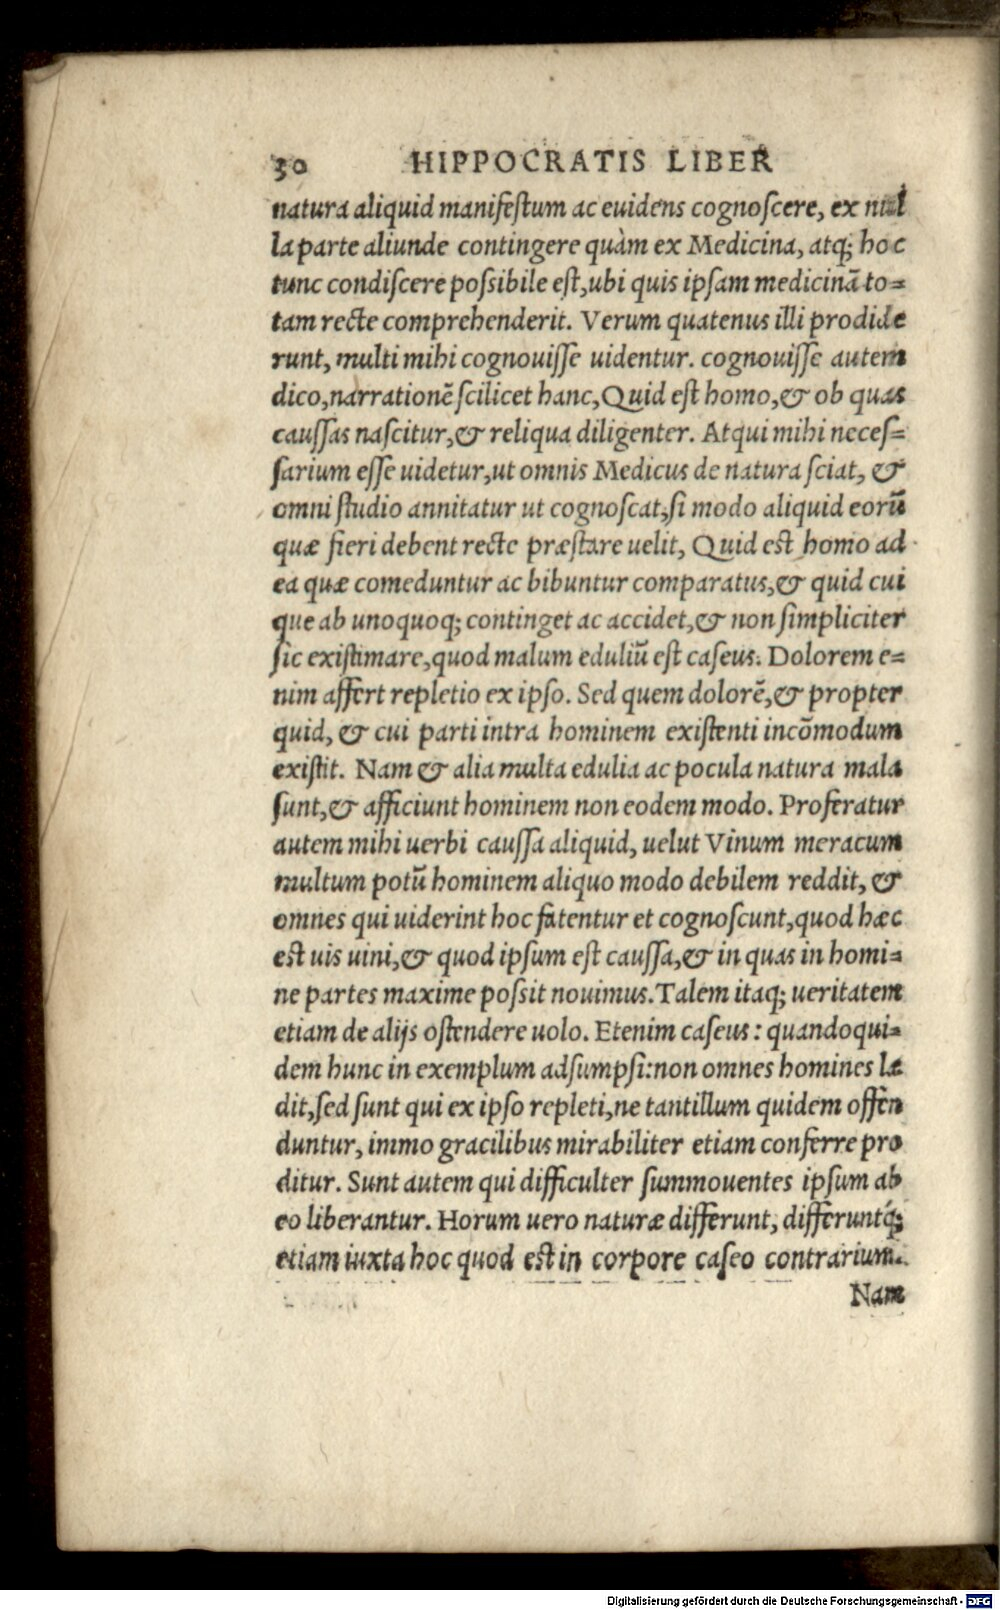 30 HIPPOCRATIS LIBER
natura aliquid manifeſtum ac euidens cognoſcere, ex nul
la parte aliunde contingere quàm ex Medicina, atq; hoc
tunc condiſcere poſsibile eſt, ubi quis ipſam medicinā to=
tam recte comprehenderit. Verum quatenus illi prodide
runt, multi mihi cognouiſſe uidentur. cognouiſſe autem
dico, narrationē ſcilicet hanc, Quid eſt homo, & ob quas
cauſſas naſcitur, & reliqua diligenter. Atqui mihi neceſ=
ſarium eſſe uidetur, ut omnis Medicus de natura ſciat, &
omni ſtudio annitatur ut cognoſcat, ſi modo aliquid eorū
quæ fieri debent recte præſtare uelit, Quid est homo ad
ea quæ comeduntur ac bibuntur comparatus, & quid cui
que ab unoquoq; continget ac accidet, & non ſimpliciter
ſic exiſtimare, quod malum eduliū eſt caſeus. Dolorem e=
nim affert repletio ex ipſo. Sed quem dolorē, & propter
quid, & cui parti intra hominem exiſtenti incōmodum
exiſtit. Nam & alia multa edulia ac pocula natura mala
ſunt, & afficiunt hominem non eodem modo. Proferatur
autem mihi uerbi cauſſa aliquid, uelut Vinum meracum
multum potū hominem aliquo modo debilem reddit, &
omnes qui uiderint hoc fatentur et cognoſcunt, quod hæc
est uis uini, & quod ipſum eſt cauſſa, & in quas in homi=
ne partes maxime poſsit nouimus. Talem itaq; ueritatem
etiam de alijs oſtendere uolo. Etenim caſeus: quandoqui=
dem hunc in exemplum adſumpſi: non omnes homines læ
dit, ſed ſunt qui ex ipſo repleti, ne tantillum quidem offen
duntur, immo gracilibus mirabiliter etiam conferre pro
ditur. Sunt autem qui difficulter ſummouentes ipſum ab
eo liberantur. Horum uero naturæ differunt, differuntq́;
etiam iuxta hoc quod est in corpore caſeo contrarium.
Nam
Digitalisierung gefördert durch die Deutsche Forschungsgemeinschaft - DFG